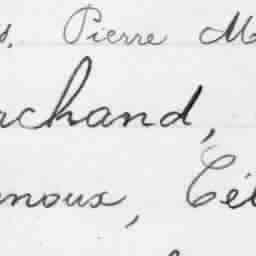 s. Pierre M
rchand,
noux, Cél